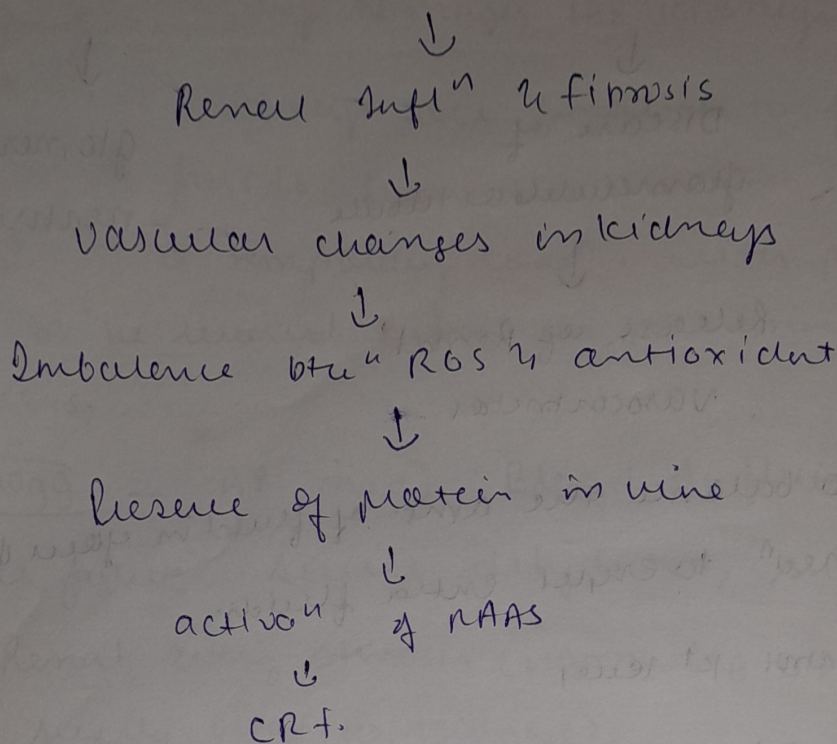 ↓
Renal Inflⁿ & fibrosis
↓
Vascular changes in kidneys
↓
Imbalence btwⁿ ROS & antioxident
↓
Presence of protein in urine
↓
activaⁿ of RAAS
↓
CRF.